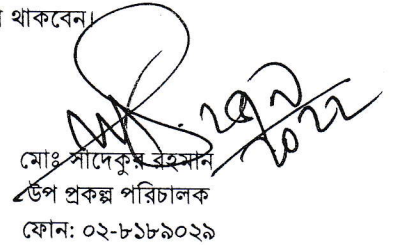 থাকবেন।
মোঃ সাদেকুর রহমান
উপ প্রকল্প পরিচালক
ফোন: ০২-৮১৮৯০২৯